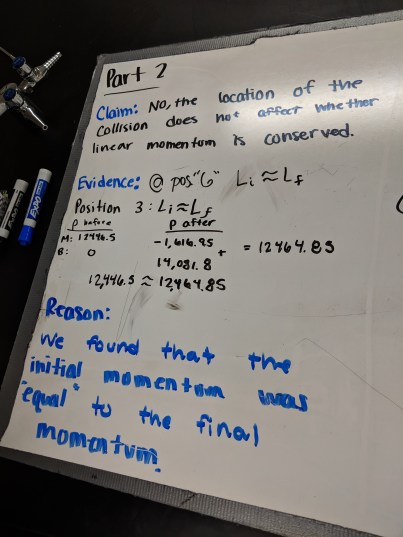 Part 2
Claim: No, the location of the
Collision does not affect whether
linear momentum is conserved.
Evidence: @ pos"6" Li ≈ Lf
Position 3: Li ≈ Lf
P before P after
M: 12446.5 -1,616.95
B: 0 14,081.8 + = 12464.85
12,446.5 ≈ 12,464.85
Reason:
We found that the
initial momentum was
"equal" to the final
momentum.
EXPO